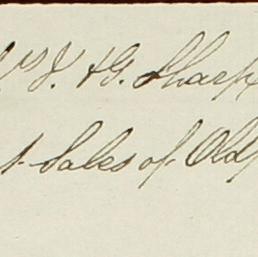 J. & G. Sharp
Sales of Old